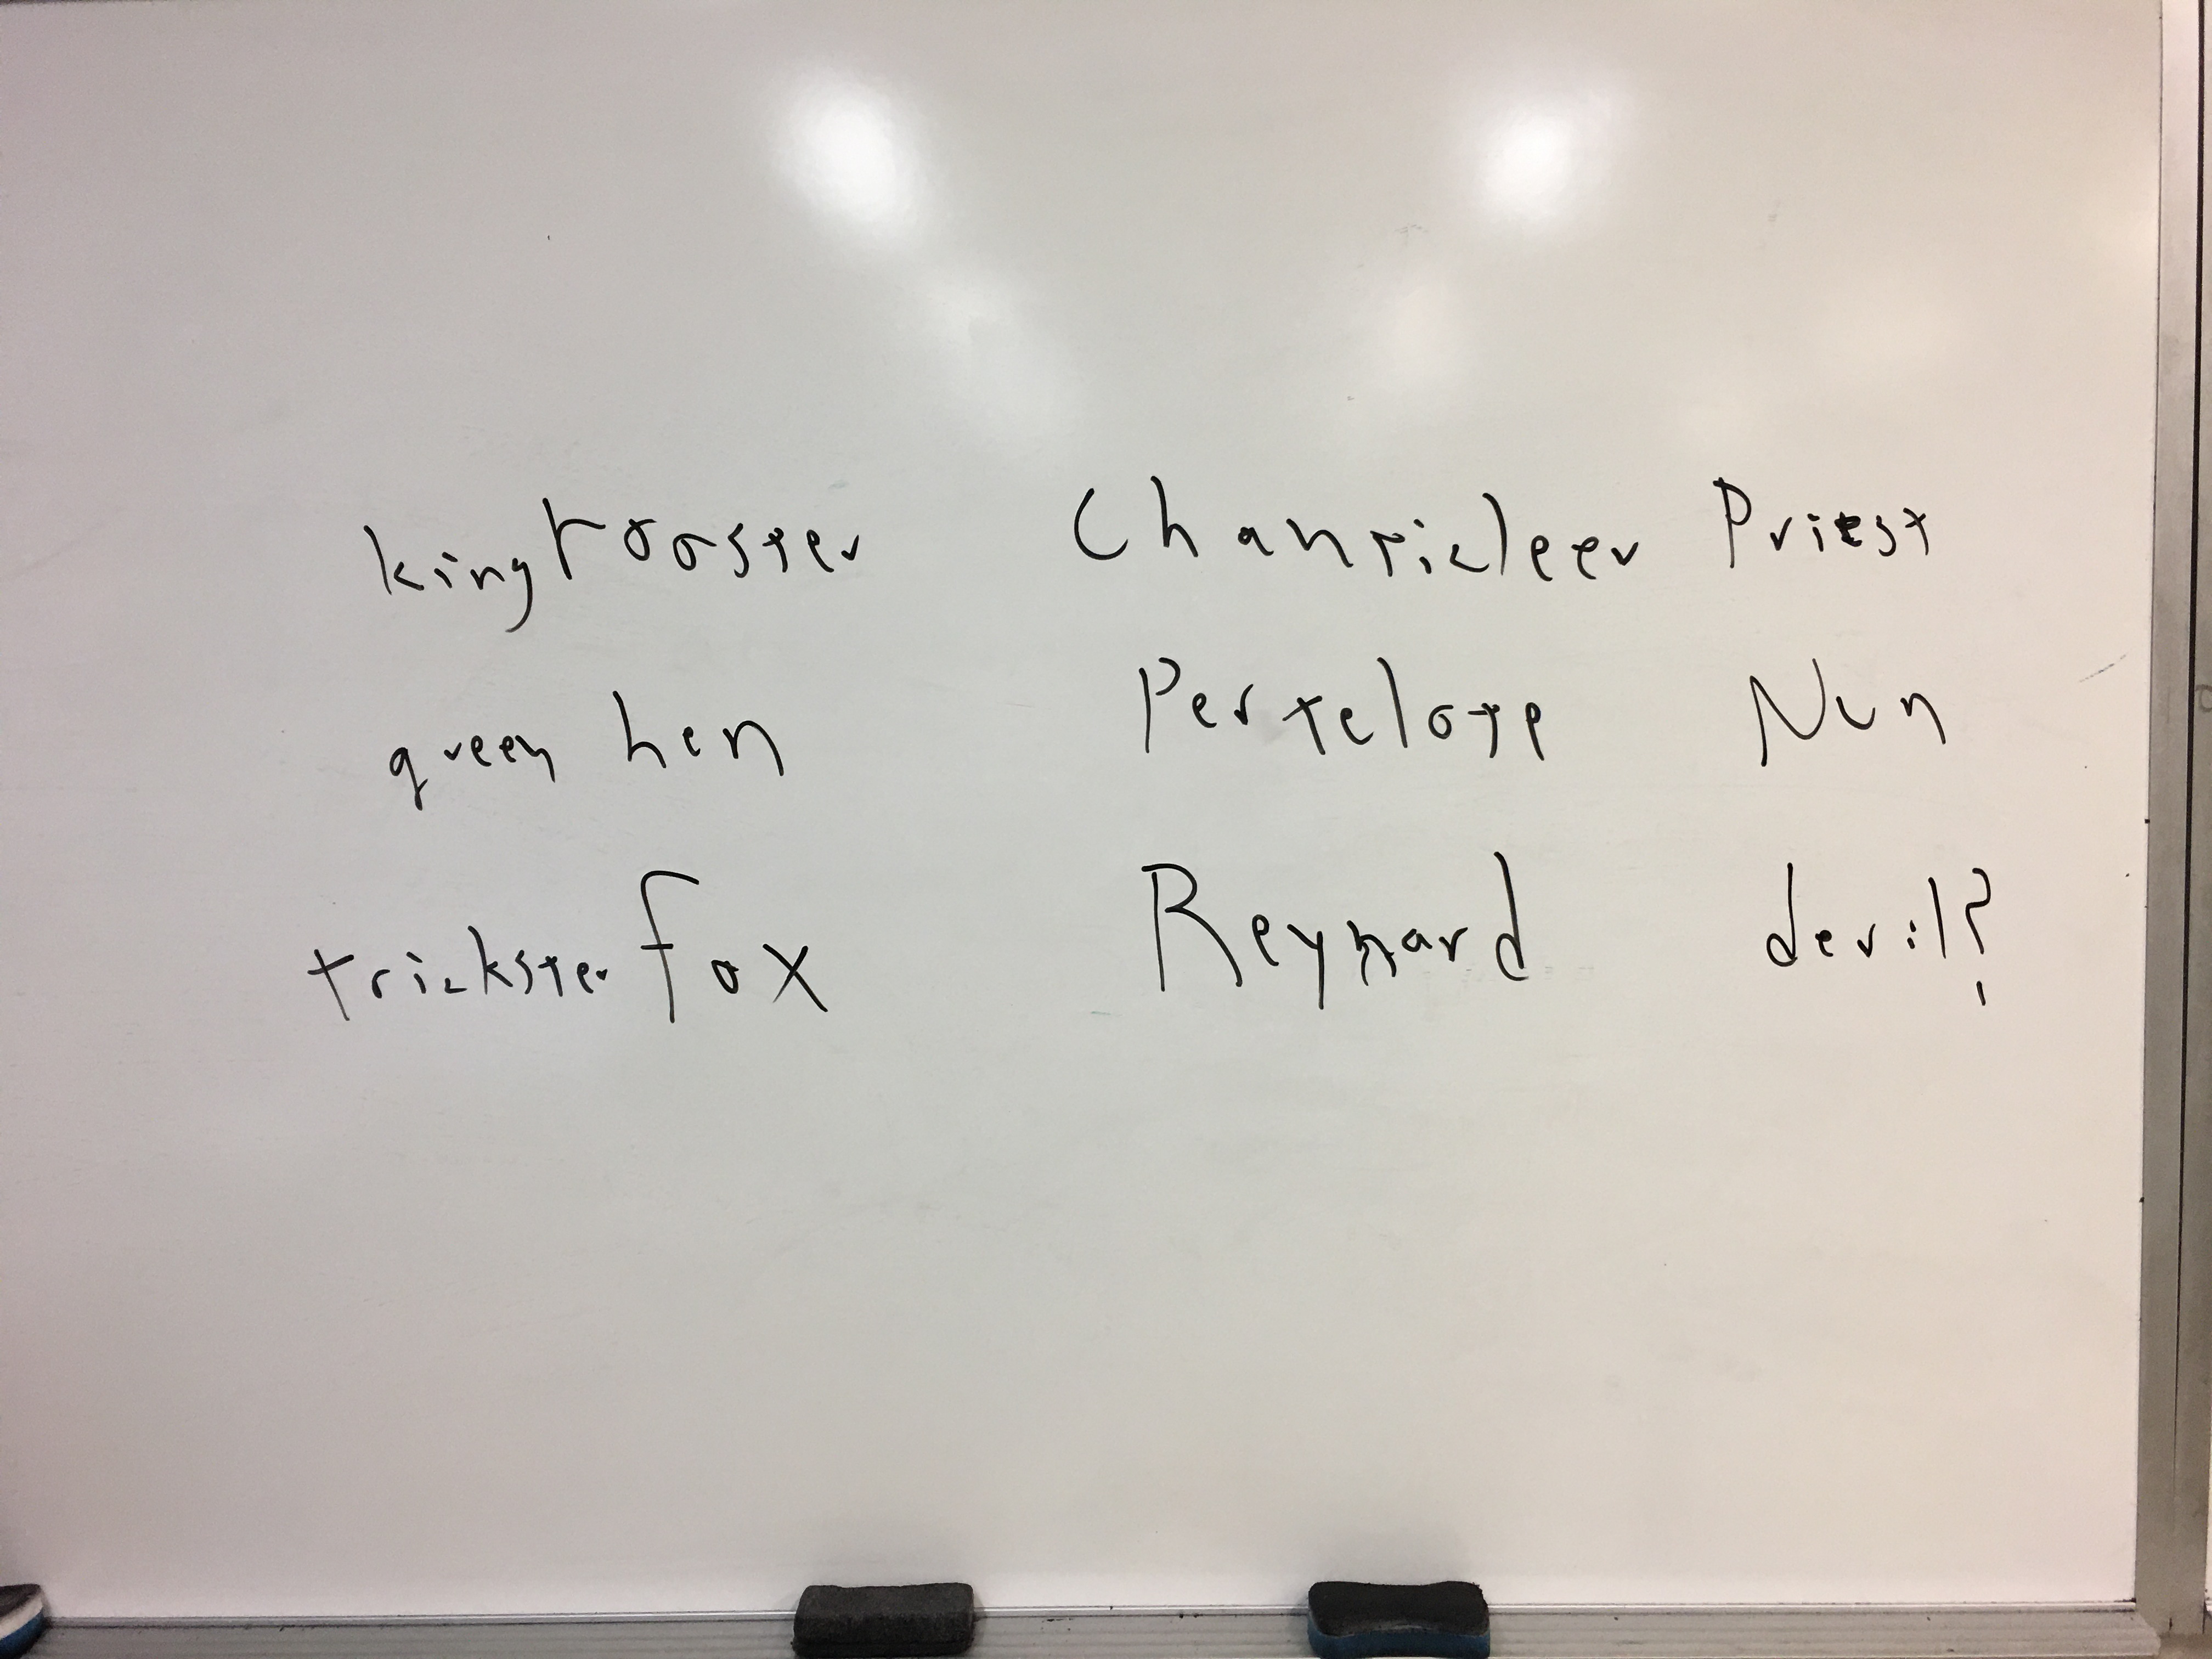 king rooster Chanticleer Priest
queen hen Pertelote Nun
trickster fox Reynard devil?